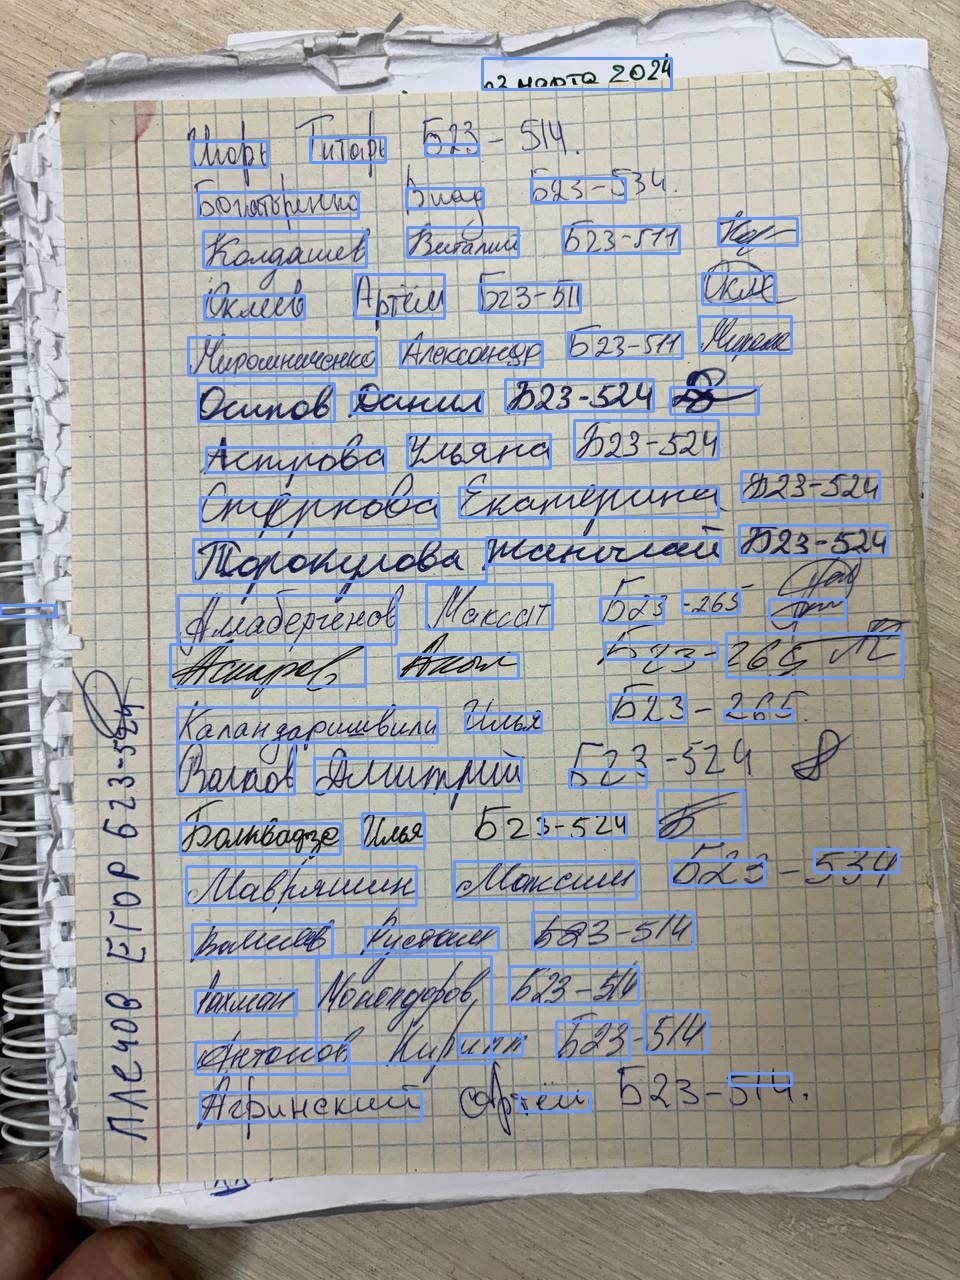 марта 2024
Игорь Титарь Б23-514.
Богатыренко Влад Б23-534.
Колдашев Виталий Б23-511
Оклеев Артём Б23-511 Окле
Мирошниченко Александр Б23-511
Осипов Данил Б23-524
Аспирова Ульяна Б23-524
Стуркова Екатерина Б23-524
Торокулова Жанылай Б23-524
Алдабергенов Максат Б23-265
Аскаров Акыл Б23-265
Каландаришвили Илья Б23-265.
Волков Дмитрий Б23-524
Болквадзе Илья Б23-524 Б
Мавряшин Максим Б23-534
Валиев Рустам Б23-514
Рахман Б23-514
Антонов Кирилл Б23-514
Агринский Артём Б23-514.
Плечов Егор Б23-524